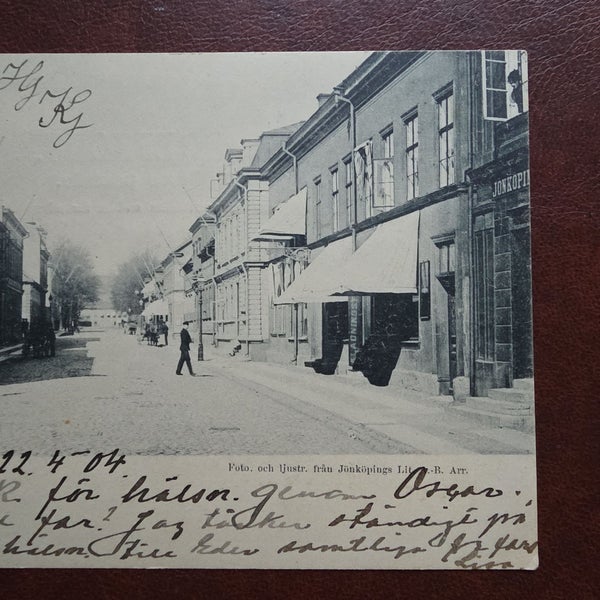 JÖNKÖPI
22.4-04
Foto. och ljustr. från Jönköpings Lit. -B. Arr.
för hälsn. genom Oscar.
far? Jag tänker ständigt på
hälsn. till Eder samtliga
Lisa